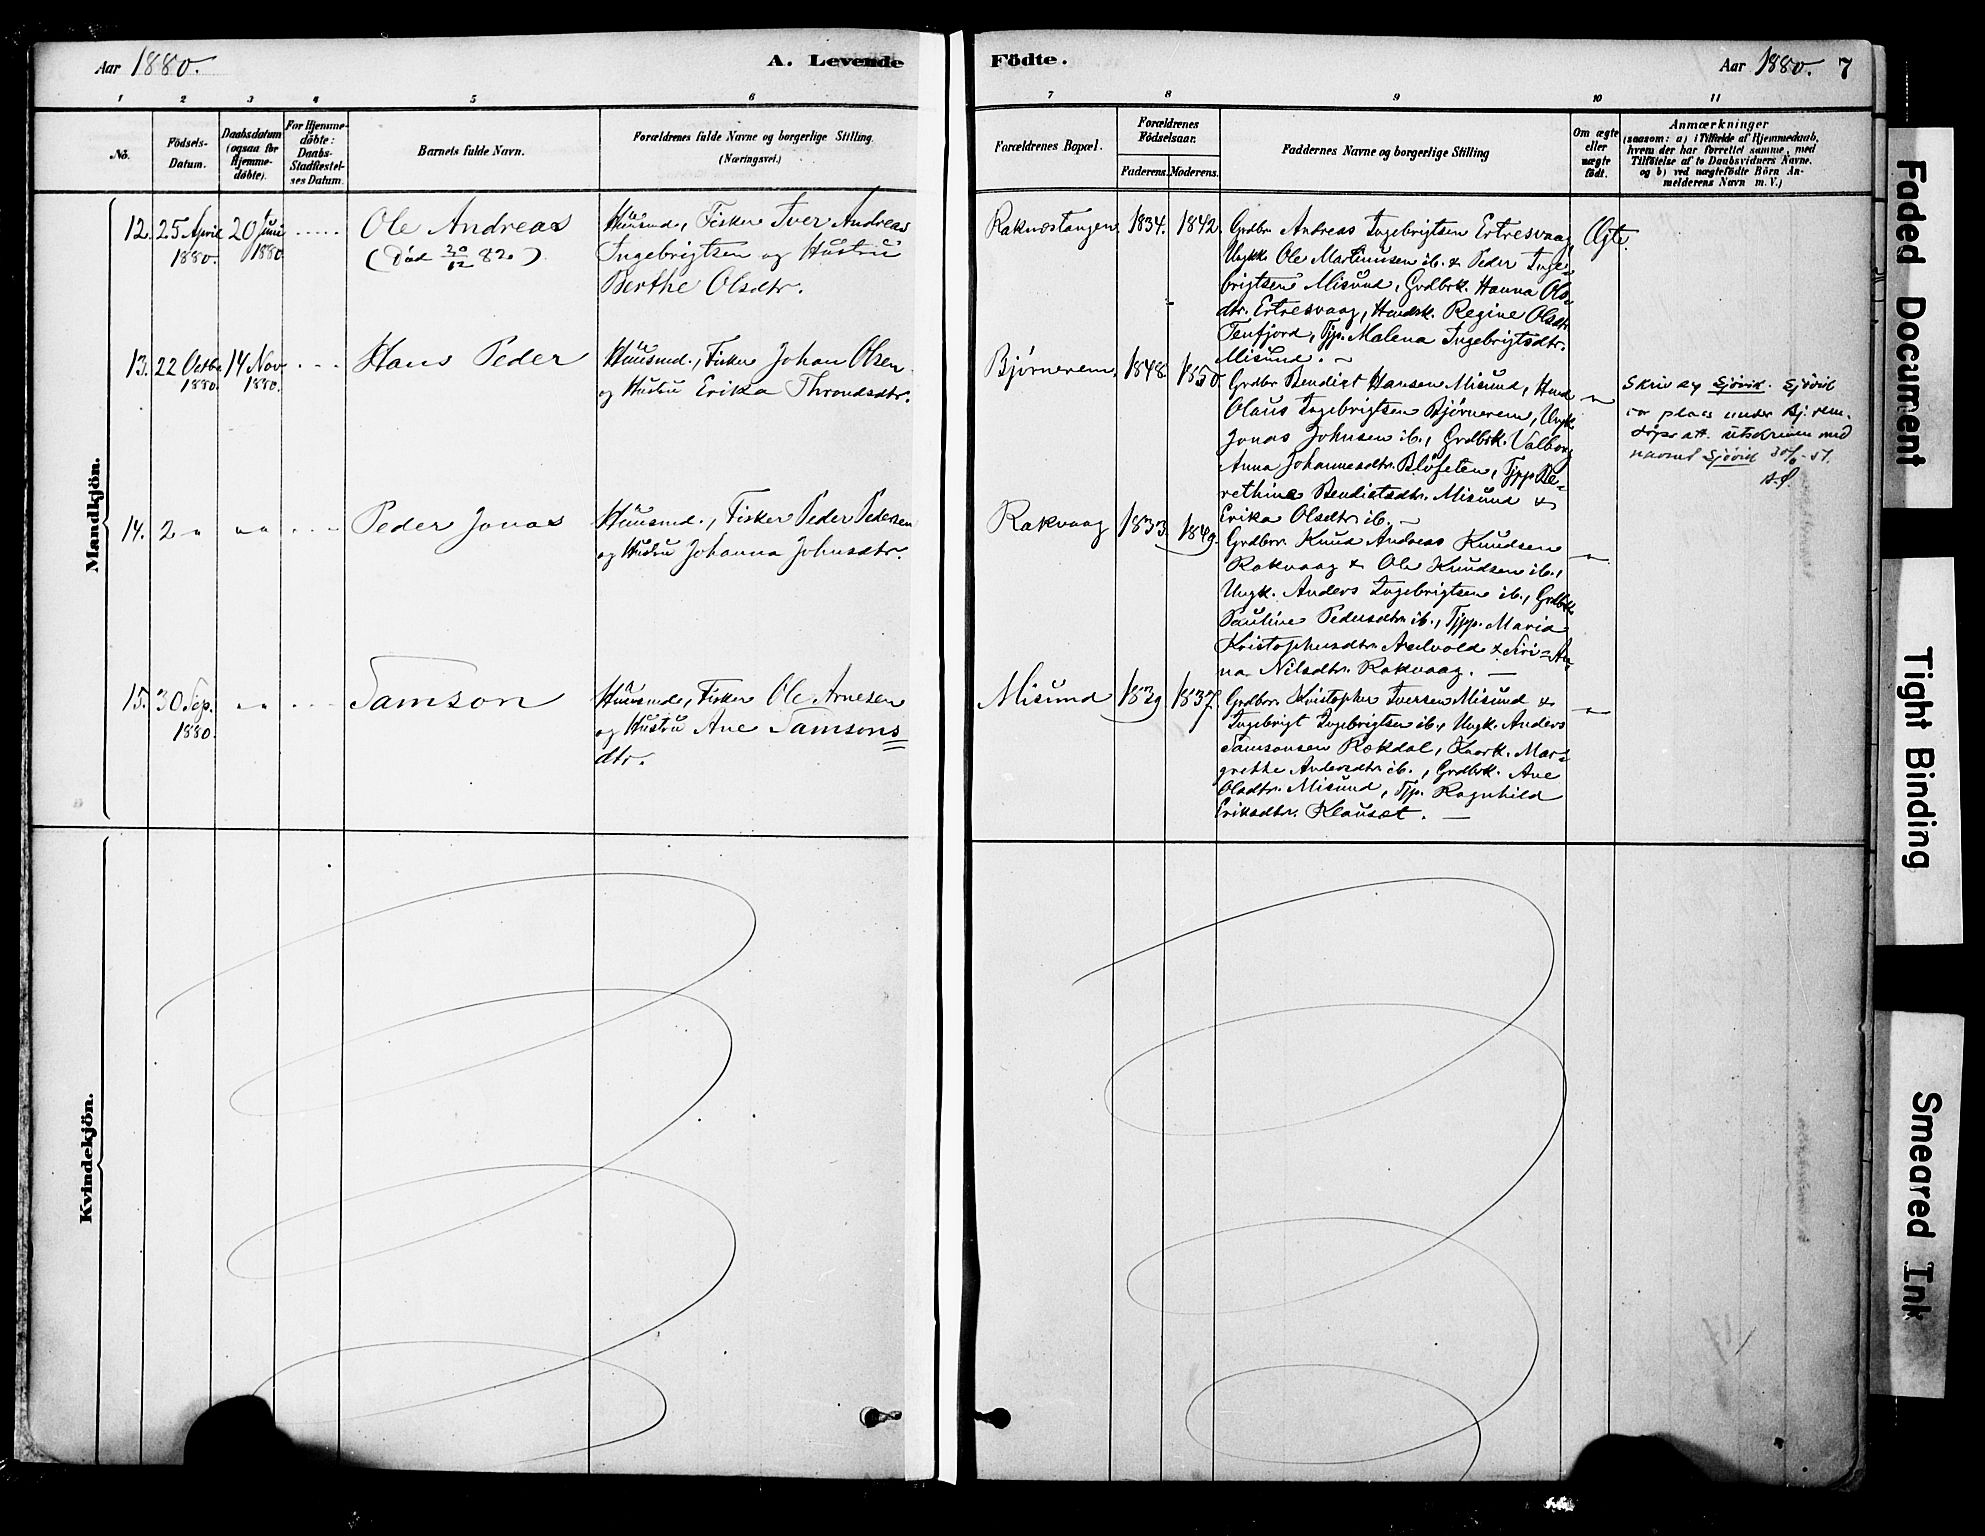 Aar 1880.
A. Levende
Födte.
Aar 1880. 7
1 2 3 4 5 6 7 8 9 10 11
No.
Födsels-
Datum.
Daabsdatum
(ogsaa for
Hjemme-
döbte).
For Hjemme-
döbte:
Daabs-
Stadfæstel-
ses Datum.
Barnets fulde Navn.
Forældrenes fulde Navne og borgerlige Stilling.
(Næringsvei.)
Forældrenes Bopæl.
Forældrenes
Födselsaar.
Faderens. Moderens.
Faddernes Navne og borgerlige Stilling
Om ægte
eller
uægte
födt.
Anmærkninger
(saasom: a) i Tilfælde af Hjemmedaab,
hvem der har forrettet samme, med
Tilföielse af to Daabsvidners Navne.
og b) ved uægtefödte Börn An-
melderens Navn m. V.)
Mandkjön.
12.
25 April
1880.
20 Juni
1880
Ole Andreas
(Död 20/12 82)
Huusmd., Fisker Iver Andreas
Ingebrigtsen og Hustru
Berthe Olsdtr.
Raknestangen
1834. 1842.
Grdbr. Andreas Ingebrigtsen Ertresvaag,
Ungk. Ole Martinusen ib. & Peder Inge-
brigtsen Misund, Grdbrk. Hanna Ols-
dtr. Ertresvaag, Huusmdsk. Regine Olsdtr.
Tenfjord, Tjp. Malena Ingebrigtsdtr.
Misund. -
Ægte.
13.
22 Octbr
1880.
14 Nov.
1880.
Hans Peder
Huusmd., Fisker Johan Olsen
og Hustru Erika Throndsdtr.
Bjørnerem.
1848. 1850.
Grdbr. Bendigt Hansen Misund, Husmd
Olaus Ingebrigtsen Bjørnerem, Ungk.
Jonas Johnsen ib., Grdbrk. Valborg
Anna Johannesdtr.
Tjpp. Be-
rethine Bendictsdtr. Misund &
Erika Olsdtr. ib. -
Skriv seg Sjövik. Sjövik
er plass under Bj.rem.
döpsatt. utskreven med
navnet Sjövik 30/8-51.
14.
2 "
" "
Peder Jonas
Huusmd., Fisker Peder Pedersen
og Hustru Johanna Johnsdtr.
Rakvaag
1833. 1849.
Grdbr. Knud Andreas Knudsen
Rakvaag & Ole Knudsen ib.,
Ungk. Anders Ingebrigtsen ib., Grdbrk.
Pauline Pedersdtr. ib., Tjpp. Maria
Kristophersdtr. & Siri-An-
na Nilsdtr. Rakvaag. -
15.
30 Sep.
1880.
" "
Samson
Huusmd., Fisker Ole Arnesen
og Hustru Ane Samsons
dtr.
Misund
1839 1837.
Grdbr. Kristopher Iversen Misund &
Ingebrigt Ingebrigtsen ib., Ungk. Anders
Samsonsen Rokdal, Mar-
grethe Andersdtr. ib., Grdbrk. Ane
Olsdtr. Misund, Tjp. Ragnhild
Eriksdtr. Klauset. -
Kvindekjön.
Faded Document
Tight Binding
Smeared Ink